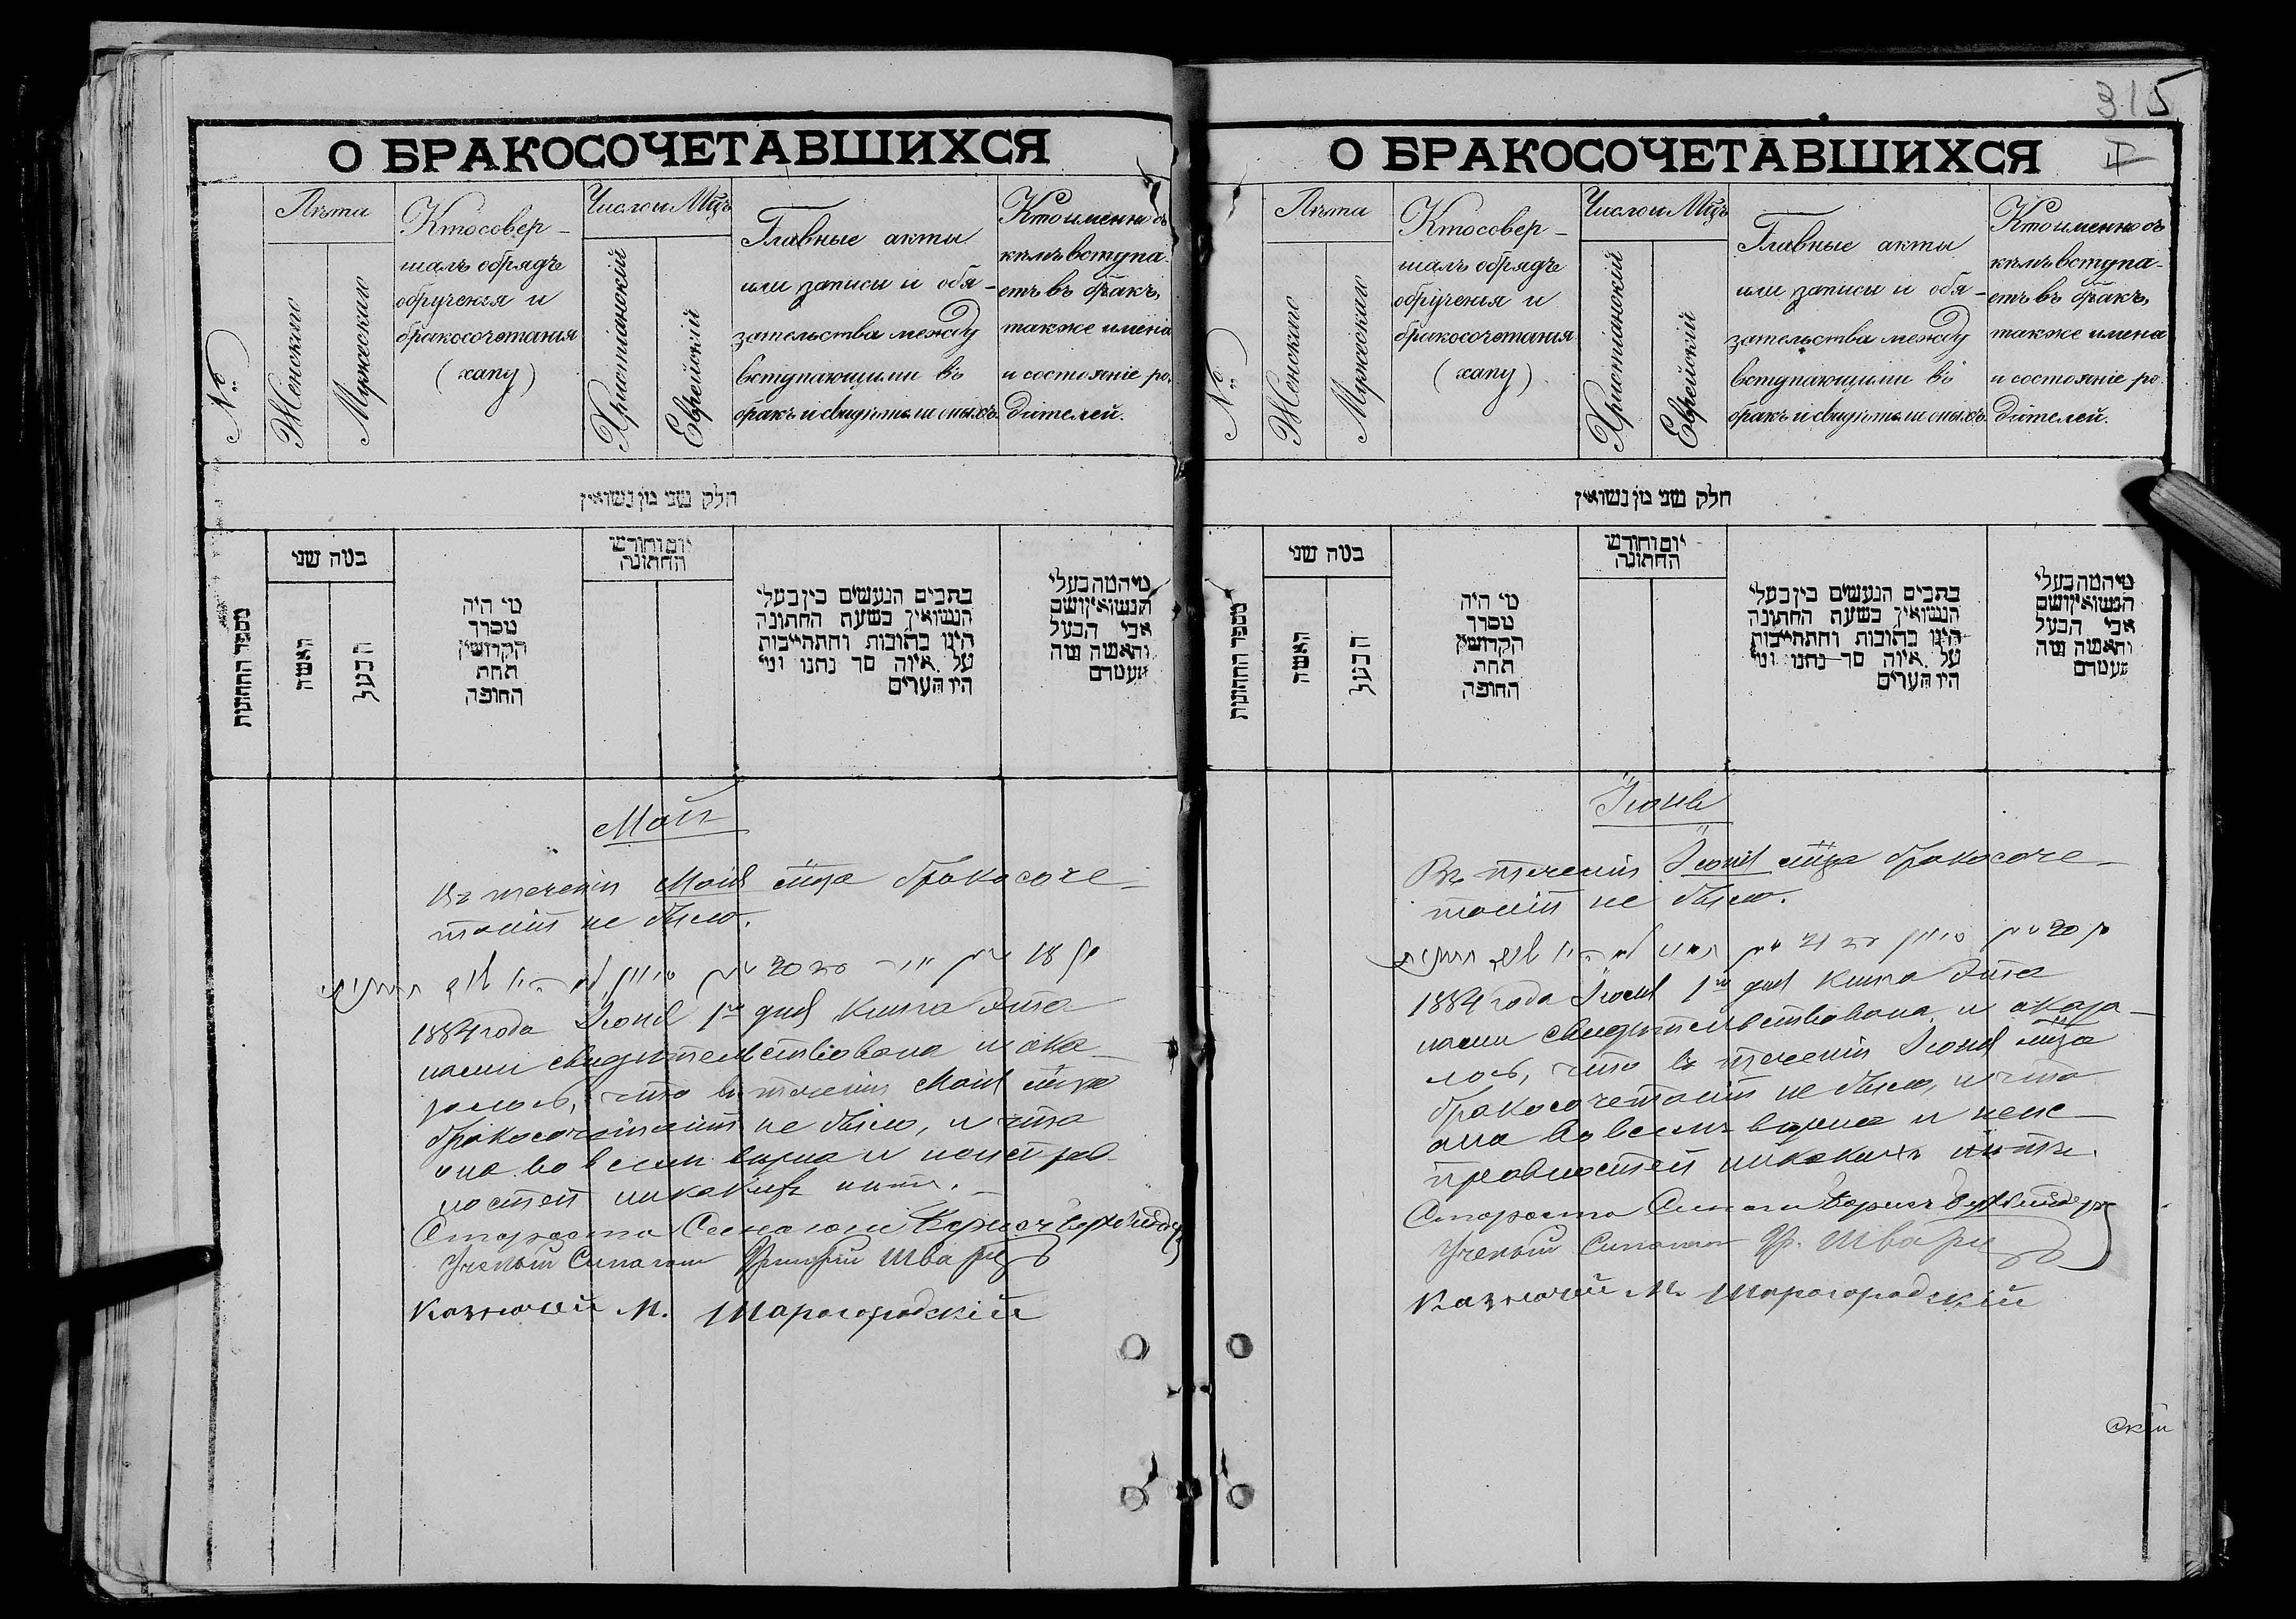 О БРАКОСОЧЕТАВШИХСЯ
№
Лѣта
Женскаго
Мужескаго
Кто совер-
шалъ обрядъ
обрученія и
бракосочетанія
(хапу)
Число и Мѣцъ
Христіанскій
Еврейскій
Главные акты
или записи и обя-
зательства между
вступающими въ
бракъ и свидѣтели оныхъ.
Кто именно съ
кѣмъ вступа-
етъ въ бракъ,
также имена
и состояніе ро-
дителей.
חלק שני מן נשואין
מספר החתונות
כמה שני
האשה
הבעל
מי היה
מסדר
הקדושין
תחת
החופה
יום וחודש
החתונה
כתבים הנעשים בין בעלי
הנשואין בשעת החתונה
היינו כתובות והתחייבות
על איזה סך נתנו ומי
היו הערים
מי המה בעלי
הנשואין ושם
אבי הבעל
והאשה ומה
מעמדם
Май
Въ теченіи Маія м‑ца бракосоче-
таній не было.
18
20
1884 года Іюня 1го дня книга эта
нами свидѣтельствована и ока-
залось, что въ теченіи Маія м‑ца
бракосочетаній не было, и что
она во всемъ вѣрна и неисправ-
ностей никакихъ нѣтъ.
Староста Синагоги Борисъ
Ученый Синагоги Шварцъ
Казначей М. Шарогородскій
315
О БРАКОСОЧЕТАВШИХСЯ
№
Лѣта
Женскаго
Мужескаго
Кто совер-
шалъ обрядъ
обрученія и
бракосочетанія
(хапу)
Число и Мѣцъ
Христіанскій
Еврейскій
Главные акты
или записи и обя-
зательства между
вступающими въ
бракъ и свидѣтели оныхъ.
Кто именно съ
кѣмъ вступа-
етъ въ бракъ,
также имена
и состояніе ро-
дителей.
חלק שני מן נשואין
מספר החתונות
כמה שני
האשה
הבעל
מי היה
מסדר
הקדושין
תחת
החופה
יום וחודש
החתונה
כתבים הנעשים בין בעלי
הנשואין בשעת החתונה
היינו כתובות והתחייבות
על איזה סך נתנו ומי
היו הערים
מי המה בעלי
הנשואין ושם
אבי הבעל
והאשה ומה
מעמדם
Іюнь
Въ теченіи Іюня м‑ца бракосоче-
таній не было.
20
21
1884 года Іюля 1го дня книга эта
нами свидѣтельствована и оказа-
лось, что въ теченіи Іюня м‑ца
бракосочетаній не было, и что
она во всемъ вѣрна и неис-
правностей никакихъ нѣтъ.
Староста Синагоги Борисъ
Ученый Синагоги Шварцъ
Казначей М. Шарогородскій
скій